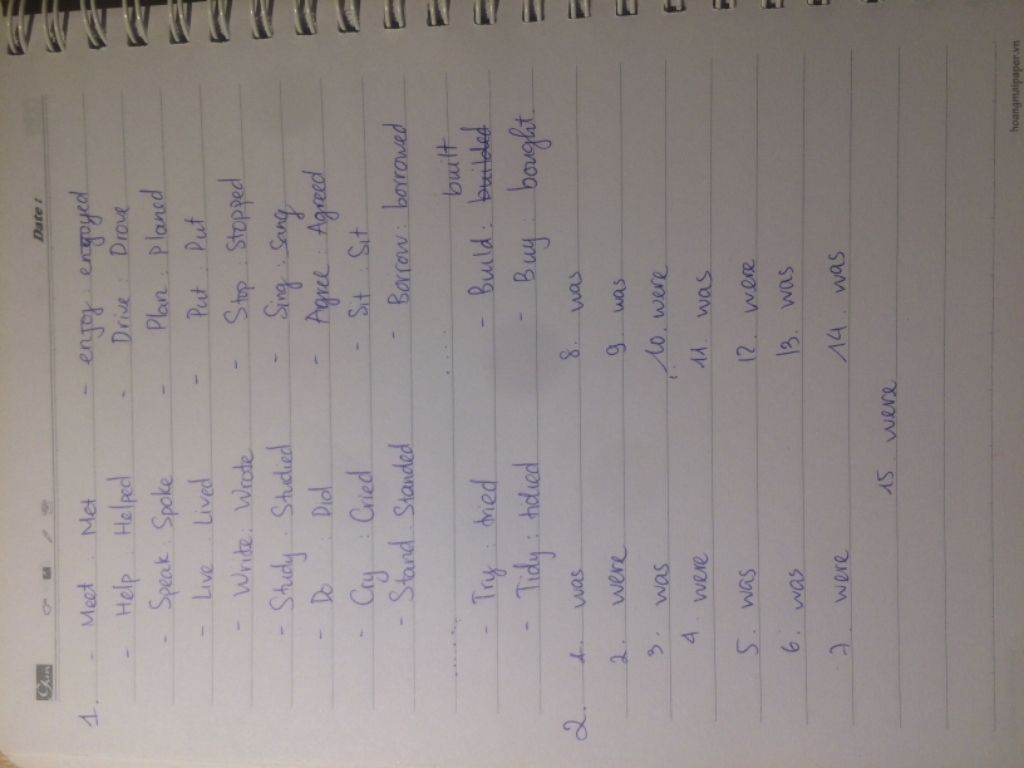 Date :
1. - Meet : Met - enjoy : enjoyed
- Help : Helped - Drive : Drove
- Speak : Spoke - Plan : Planed
- Live : Lived - Put : Put
- Write : Wrote - Stop : Stopped
- Study : Studied - Sing : Sang
- Do : Did - Agree : Agreed
- Cry : Cried - Sit : Sit
- Stand : Standed - Borrow : borrowed
built
- Try : tried - Build : builded
- Tidy : tidied - Buy : bought
2. 1. was 8. was
2. were 9. was
3. was 10. were
4. were 11. was
5. was 12. were
6. was 13. was
7. were 14. was
15. were
hoangmaipaper.vn